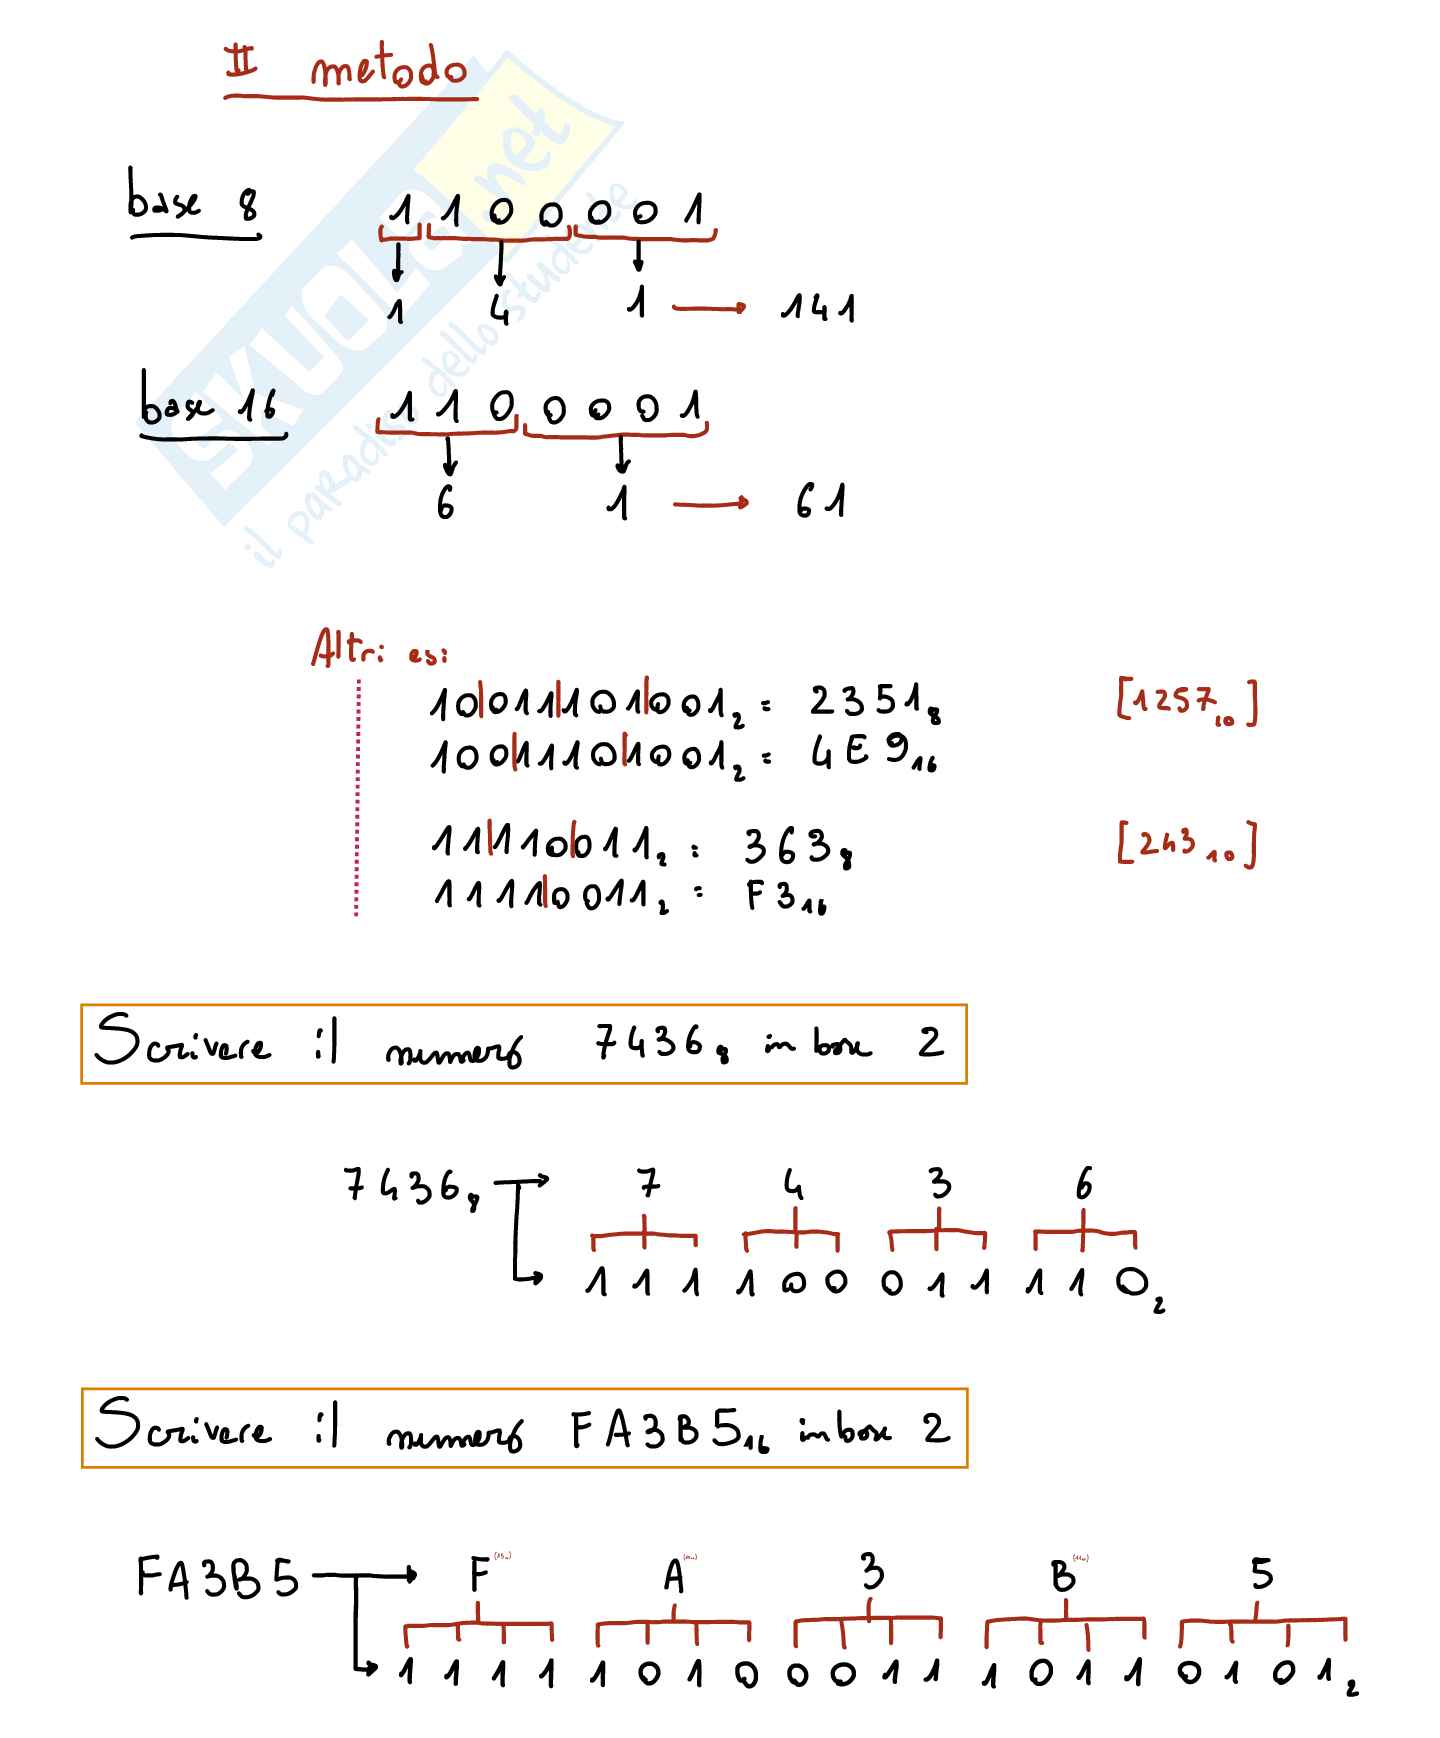 II metodo
base 8 1 1 0 0 0 0 1
1 4 1 → 141
base 16 1 1 0 0 0 0 1
6 1 → 61
SKUOLA.net
il paradiso dello studente
Altri es:
10|011|101|001₂ = 2351₈ [1257₁₀]
100|1110|1001₂ = 4E9₁₆
11|110|011₂ = 363₈ [243₁₀]
1111|0011₂ = F3₁₆
Scrivere il numero 7436₈ in base 2
7436₈ → 7 4 3 6
→ 1 1 1 1 0 0 0 1 1 1 1 0₂
Scrivere il numero FA3B5₁₆ in base 2
FA3B5 → F A 3 B 5
→ 1 1 1 1 1 0 1 0 0 0 1 1 1 0 1 1 0 1 0 1₂